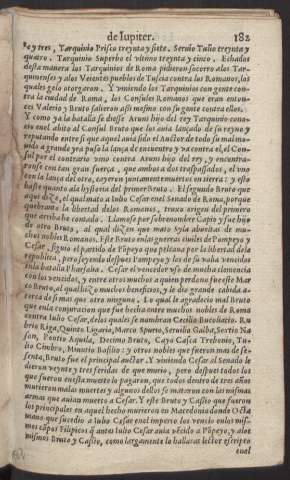 de Iupiter. 182
Rey tres, Tarquinio Prisco treynta y siete. Seruio Tulio treynta y
quatro. Tarquinio Superbo el vltimo treynta y cinco. Echados
desta manera los Tarquinios de Roma pidieron socorro a los Tar-
quinenses y a los Veientes pueblos de Tuscia contra los Romanos, los
quales gelo otorgaron. Y viniendo los Tarquinios con gente con-
tra la ciudad de Roma, los Consules Romanos que eran enton-
ces Valerio y Bruto salieron assi mismo con su gente contra ellos.
Y como ya la batalla se diesse Aruns hijo del rey Tarquinio cono-
cio enel abito al Consul Bruto que los auia lançado de su reyno y
reputando entre si que aquel auia sido el Auctor de todo su mal mo-
uido a grande yra puso la lança de encuentro y va contra el, el Con-
sul por el contrario vino contra Aruns hijo del rey, y encontra-
ronse con tan gran fuerça, que ambos a dos traspassados, el vno
con la lança del otro, cayeron juntamente muertos en tierra: y esto
baste quanto ala hystoria del primer Bruto. El segundo Bruto que
aqui dize, el qual mato a Iulio Cesar enel Senado de Roma, porque
quebranto la libertad delos Romanos, truxo origen del primero
que arriba he contado. Llamose por sobrenombre Cepio y fue hijo
de otro Bruto, al qual dizen que mato Syla abueltas de mu-
chos nobles Romanos. Este Bruto enlas guerras ciuiles de Pompeyo y
Cesar, siguio el partido de Põpeyo que peleaua por la libertad dela
republica, pero seyendo despues Pompeyo y los de su vaba vencidos
enla batalla Pharsalia. Cesar el vencedor vso de mucha clemencia
con los vencidos, y entre otros muchos a quien perdono fue este Mar
co Bruto, al qual hizo muchos beneficios, y dio grande cabida a-
cerca de si mas que otro ninguno. Lo qual le agradecio mal Bruto
que enla conjuracion que fue hecha entre muchos nobles de Roma
contra Iulio Cesar, delos quales se nombran Cecilio Bucoliano. Ru
brio Riga, Quinto Ligario, Marco Spurio, Seruilio Galba, Sertio Na
son, Pontio Aquila, Decimo Bruto, Cayo Casca Trebonio, Tu-
lio Cimbro, Minutio Basilio: y otros nobles que fueron mas de se-
senta, Bruto fue el principal auctor. Y viniendo Cesar al Senado le
dieron veynte y tres feridas de que murio, pero despues todos los
que fueron enesta muerte lo pagaron, que todos dentro de tres años
murieron malas muertes y algunos dellos se mataron con las mismas
armas que auian muerto a Cesar. Y este Bruto y Cassio que fueron
los principales en aquel hecho murieron en Macedonia donde Octa
uiano que sucedio a Iulio Cesar enel imperio los vencio enlos mis-
mos cãpos Filipicos q̃ antes Iulio Cesar auia vẽcido a Põpeyo, y alos
mismos Bruto y Cassio, como largamente lo hallaras lector escripto
enel